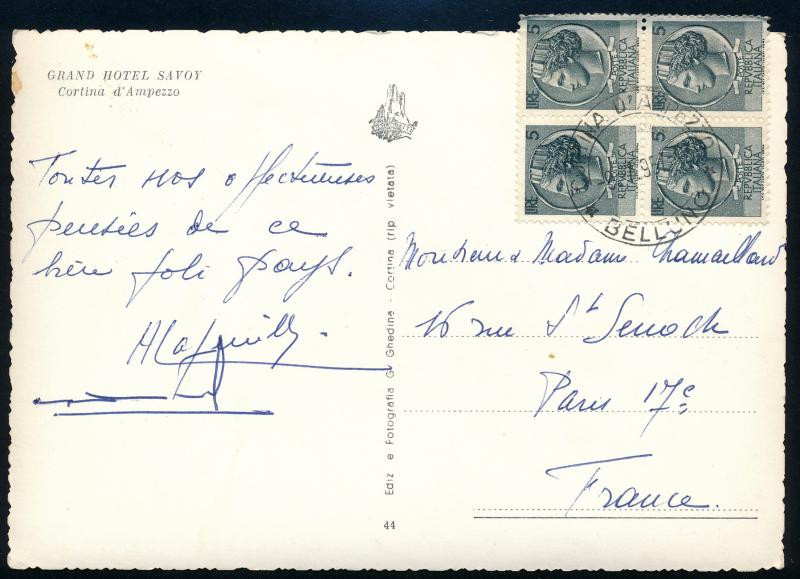 GRAND HOTEL SAVOY
Cortina d'Ampezzo
Toutes nos affectueuses
pensées de ce
très joli pays.
Ediz e Fotografia G. Ghedina - Cortina (rip. vietata)
44
5 LIRE POSTE REPVBBLICA ITALIANA
5 LIRE POSTE REPVBBLICA ITALIANA
5 LIRE POSTE REPVBBLICA ITALIANA
5 LIRE POSTE REPVBBLICA ITALIANA
D'AMPEZZO
BELLUNO
Monsieur & Madame Chamaillard
16 rue St Senoch
Paris 17e
France.